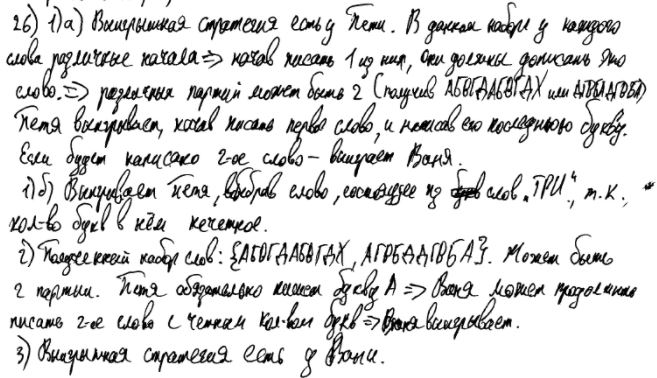 26) 1) а) Выигрышная стратегия есть у Пети. В данном наборе у каждого
слова различные начала => начав писать 1 из них, они должны дописать это
слово. => различных партий может быть 2 (получив АБВГДАБВГДХ или
Петя выигрывает, начав писать первое слово, и написав его последнюю букву.
Если будет написано 2-ое слово – выиграет Ваня.
1) б) Выигрывает Петя, выбрав слово, состоящее из слов „ТРИ", т.к.,
кол-во букв в нём нечетное.
2) набор слов: {АБВГДАБВГДХ, }. Может быть
2 партии. Петя обязательно пишет букву А => Ваня может продолжить
писать 2-ое слово с четным кол-вом букв => Ваня выигрывает.
3) Выигрышная стратегия есть у Вани.